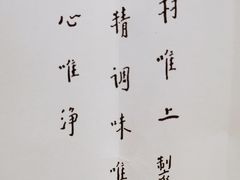 材唯上製
精調味唯
心唯淨